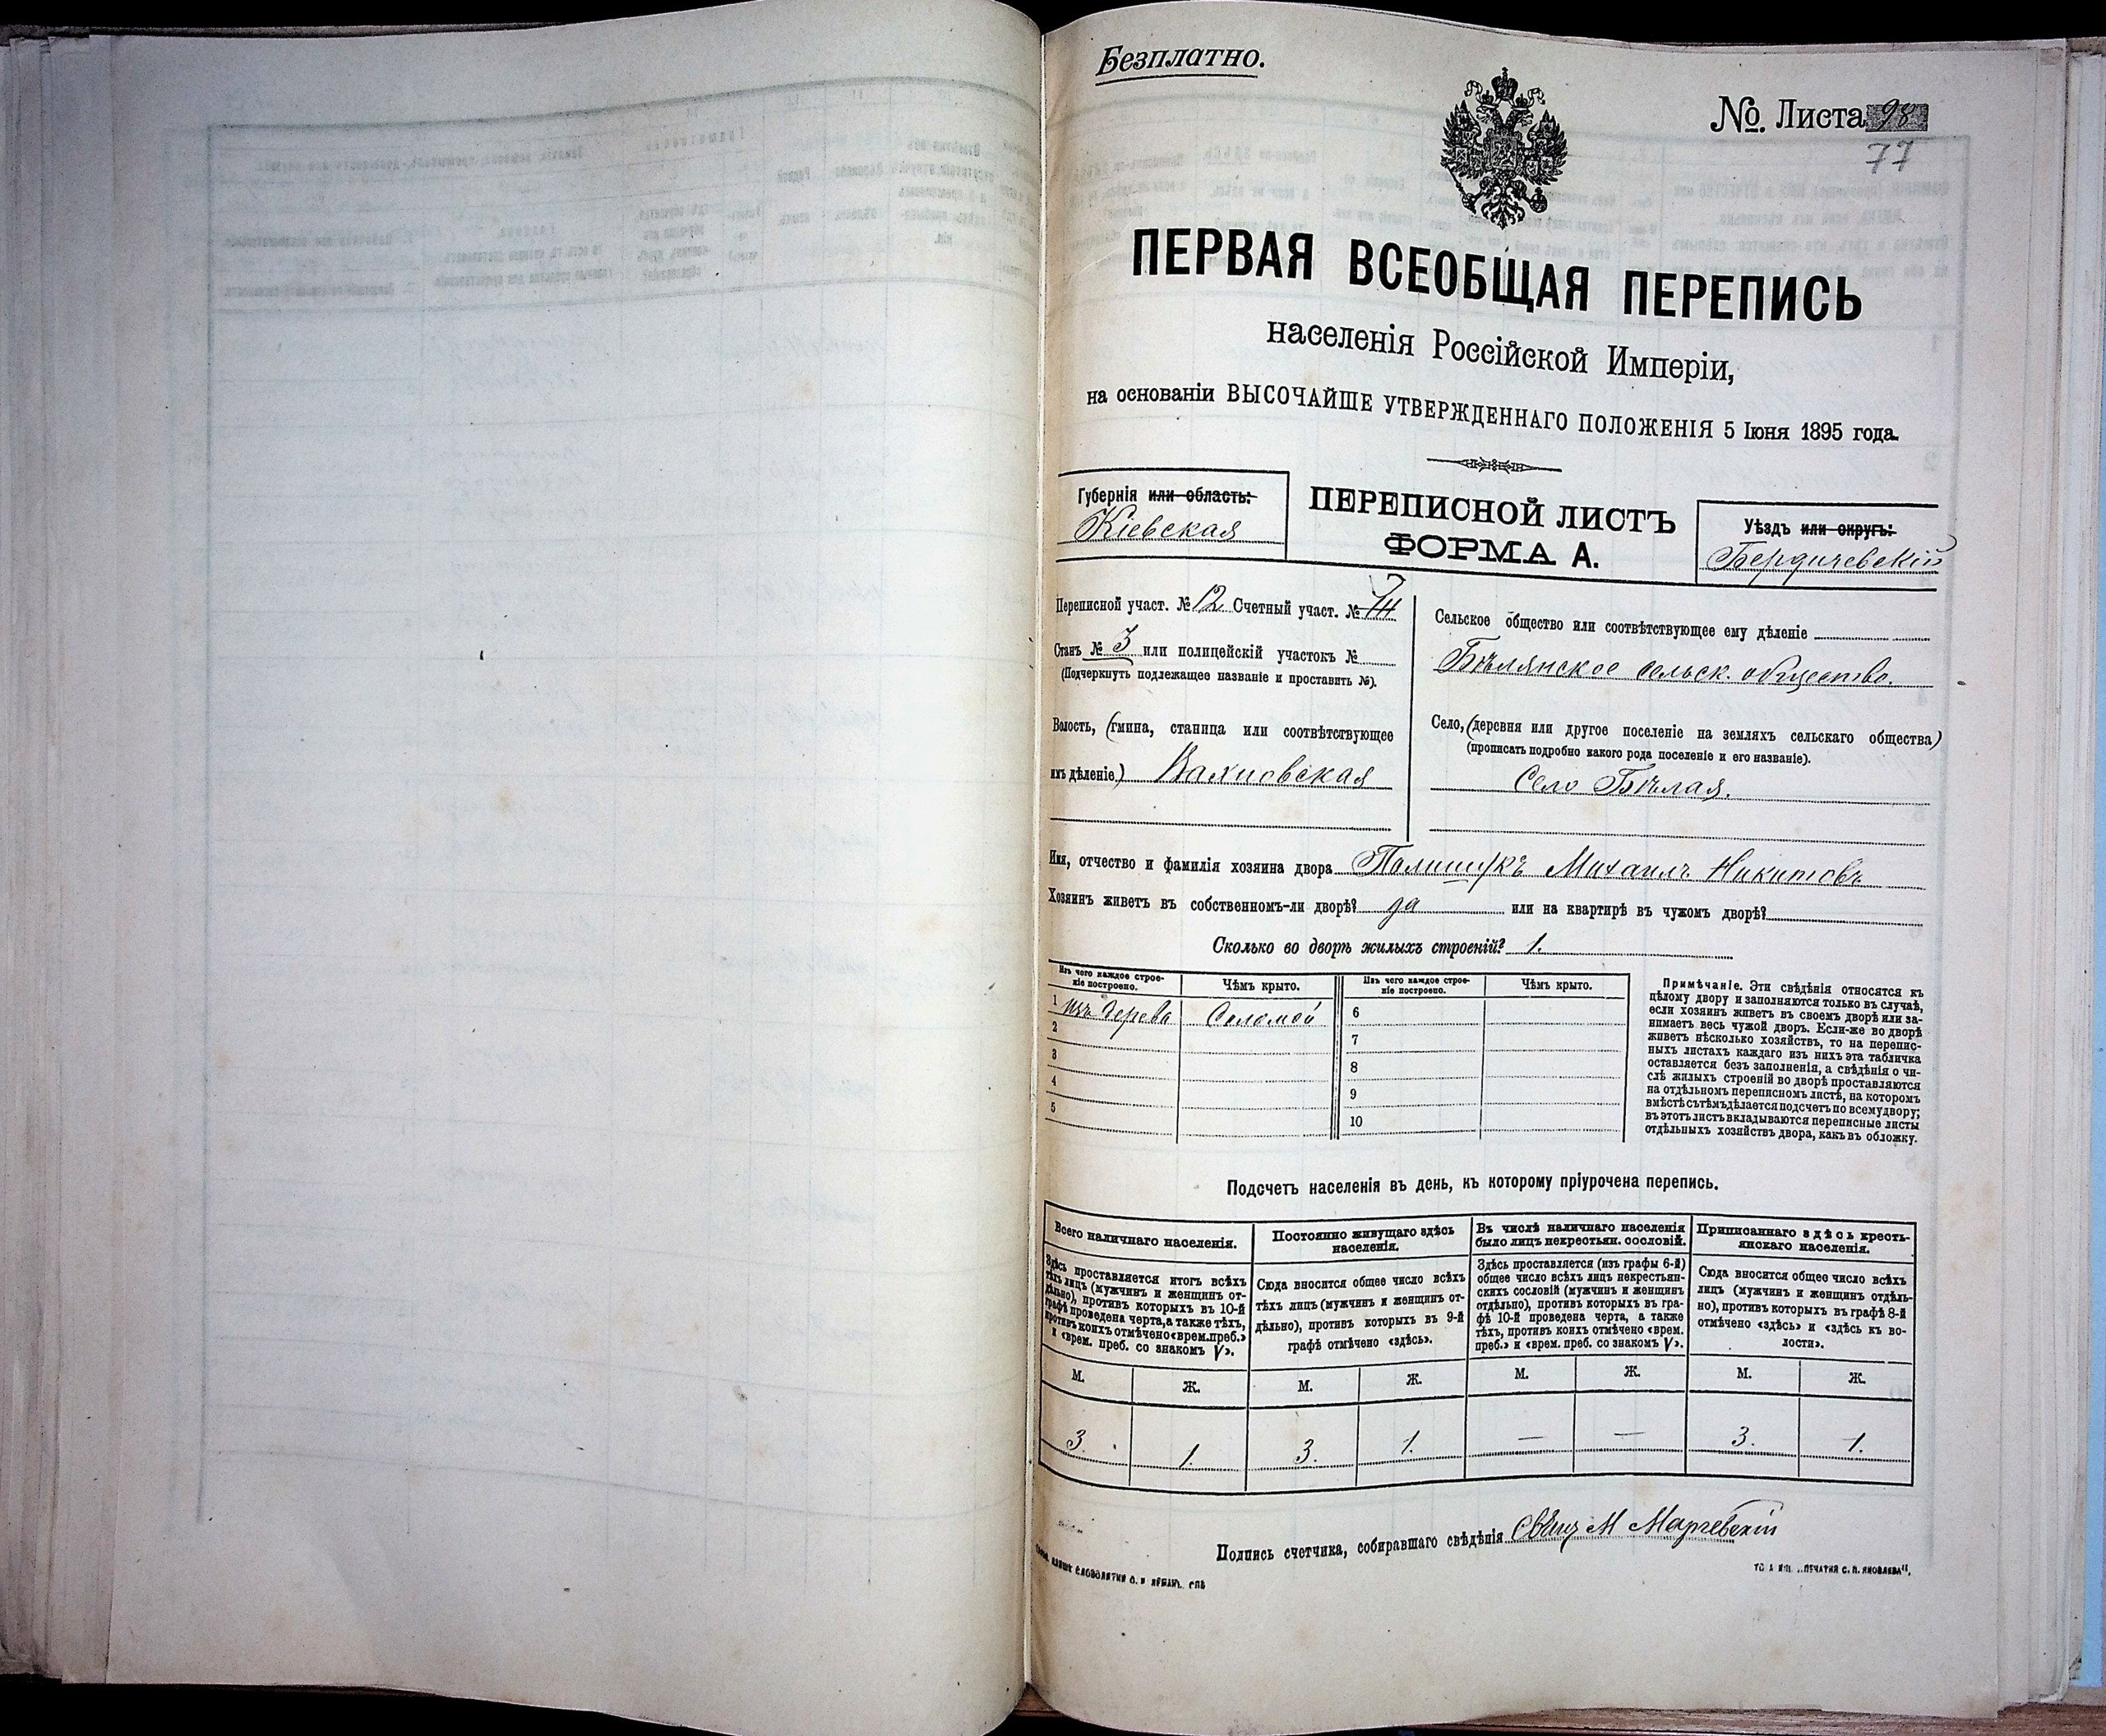 Безплатно.
№ Листа 98
77
ПЕРВАЯ ВСЕОБЩАЯ ПЕРЕПИСЬ
населенія Россійской Имперіи,
на основаніи ВЫСОЧАЙШЕ УТВЕРЖДЕННАГО ПОЛОЖЕНІЯ 5 Іюня 1895 года.
Губернія или область:
Кіевская
ПЕРЕПИСНОЙ ЛИСТЪ
ФОРМА А.
Уѣздъ или округъ:
Бердичевскій
Переписной участ. № 12 Счетный участ. № 7
Станъ № 3 или полицейскій участокъ №
(Подчеркнуть подлежащее названіе и проставить №).
Волость, (гмина, станица или соотвѣтствующее
имъ дѣленіе) Вахновская
Сельское общество или соотвѣтствующее ему дѣленіе
Бѣлянское сельск. общество.
Село, (деревня или другое поселеніе на земляхъ сельскаго общества)
(прописать подробно какого рода поселеніе и его названіе).
Село Бѣлая.
Имя, отчество и фамилія хозяина двора Полищукъ Михаилъ Никитовъ
Хозяинъ живетъ въ собственномъ-ли дворѣ? да или на квартирѣ въ чужомъ дворѣ?
Сколько во дворѣ жилыхъ строеній? 1.
Изъ чего каждое строе-
ніе построено.
Чѣмъ крыто.
Изъ чего каждое строе-
ніе построено.
Чѣмъ крыто.
1 изъ дерева Соломой 6
2 7
3 8
4 9
5 10
Примѣчаніе. Эти свѣдѣнія относятся къ
цѣлому двору и заполняются только въ случаѣ,
если хозяинъ живетъ въ своемъ дворѣ или за-
нимаетъ весь чужой дворъ. Если-же во дворѣ
живетъ нѣсколько хозяйствъ, то на перепис-
ныхъ листахъ каждаго изъ нихъ эта табличка
оставляется безъ заполненія, а свѣдѣнія о чи-
слѣ жилыхъ строеній во дворѣ проставляются
на отдѣльномъ переписномъ листѣ, на которомъ
вмѣстѣ съ тѣмъ дѣлается подсчетъ по всему двору;
въ этотъ листъ вкладываются переписные листы
отдѣльныхъ хозяйствъ двора, какъ въ обложку.
Подсчетъ населенія въ день, къ которому пріурочена перепись.
Всего наличнаго населенія.
Здѣсь проставляется итогъ всѣхъ
тѣхъ лицъ (мужчинъ и женщинъ от-
дѣльно), противъ которыхъ въ 10-й
графѣ проведена черта, а также тѣхъ,
противъ коихъ отмѣчено «врем. преб.»
и «врем. преб. со знакомъ V».
Постоянно живущаго здѣсь
населенія.
Сюда вносится общее число всѣхъ
тѣхъ лицъ (мужчинъ и женщинъ от-
дѣльно), противъ которыхъ въ 9-й
графѣ отмѣчено «здѣсь».
Въ числѣ наличнаго населенія
было лицъ некрестьян. сословій.
Здѣсь проставляется (изъ графы 6-й)
общее число всѣхъ лицъ некрестьян-
скихъ сословій (мужчинъ и женщинъ
отдѣльно), противъ которыхъ въ гра-
фѣ 10-й проведена черта, а также
тѣхъ, противъ коихъ отмѣчено «врем.
преб.» и «врем. преб. со знакомъ V».
Приписаннаго здѣсь кресть-
янскаго населенія.
Сюда вносится общее число всѣхъ
лицъ (мужчинъ и женщинъ отдѣль-
но), противъ которыхъ въ графѣ 8-й
отмѣчено «здѣсь» и «здѣсь къ во-
лости».
М. Ж. М. Ж. М. Ж. М. Ж.
3. 1. 3. 1. — — 3. 1.
Подпись счетчика, собиравшаго свѣдѣнія Свящ М